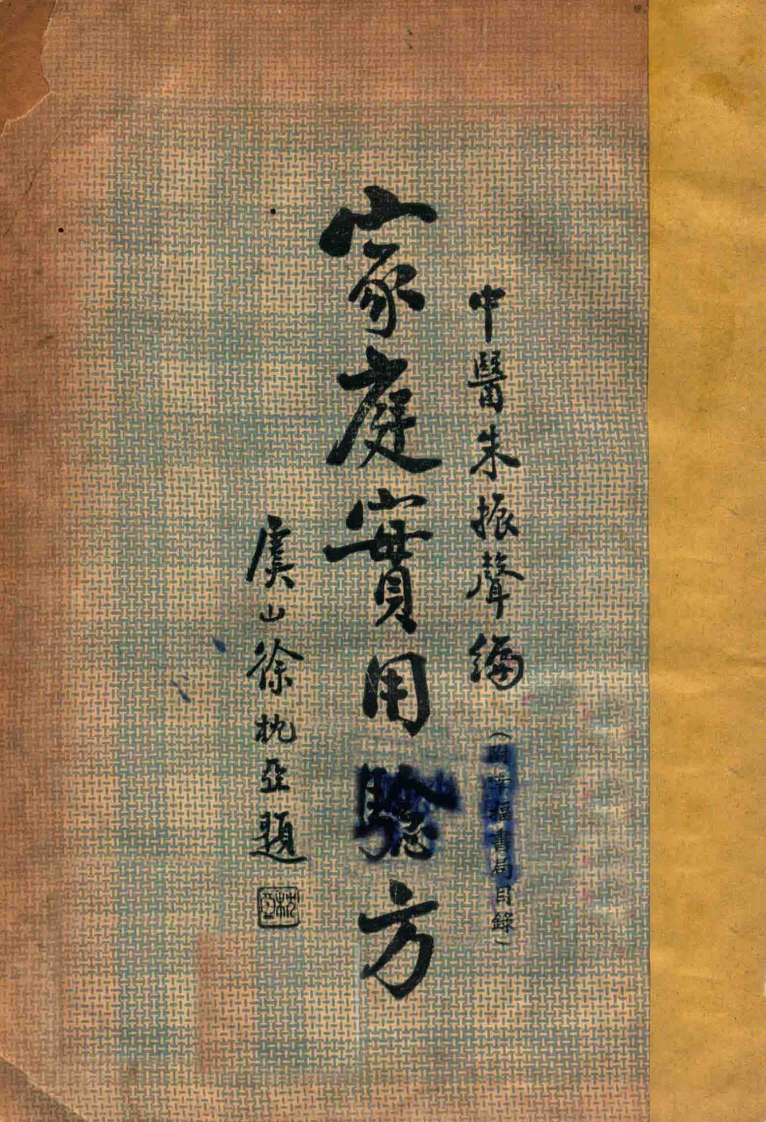 中醫朱振聲編
（附幸福書局目錄）
家庭實用驗方
虞山徐枕亞題
枕亞